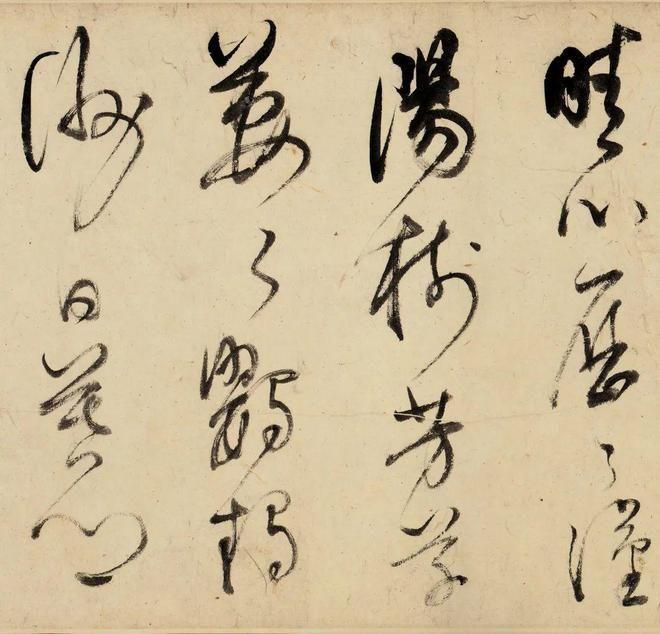 晴川歷〻漢
陽樹芳草
萋〻鸚鵡
洲日暮鄉